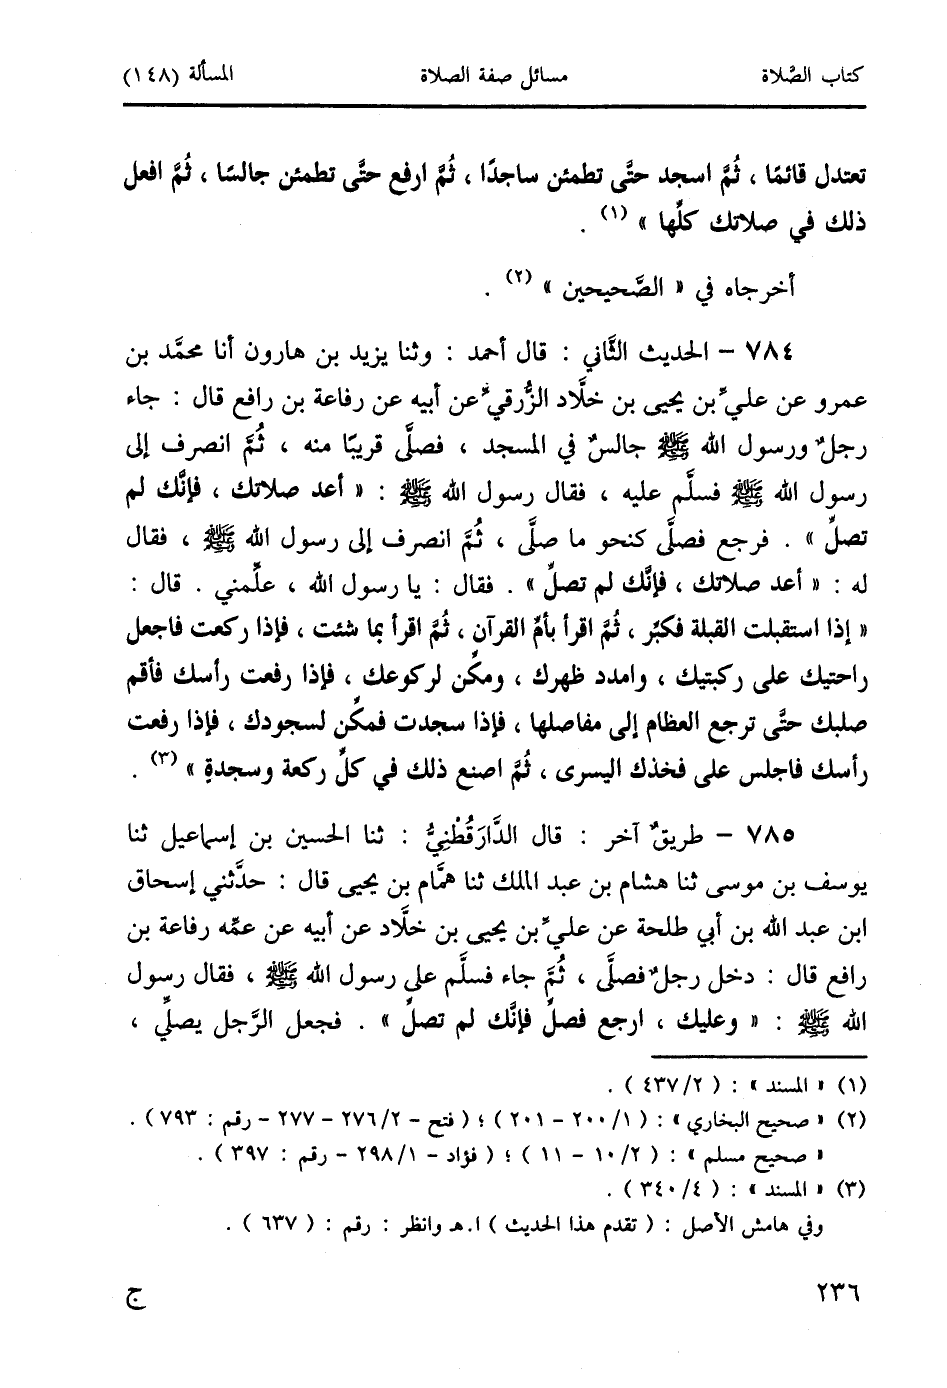 كتاب الصَّلاة مسائل صفة الصلاة المسألة (١٤٨)
تعتدل قائمًا ، ثُمَّ اسجد حتَّى تطمئن ساجدًا ، ثُمَّ ارفع حتَّى تطمئن جالسًا ، ثُمَّ افعل
ذلك في صلاتك كلِّها » (١) .
أخرجاه في « الصَّحيحين » (٢) .
٧٨٤ – الحديث الثَّاني : قال أحمد : وثنا يزيد بن هارون أنا محمَّد بن
عمرو عن عليِّ بن يحيى بن خلَّاد الزُّرقيِّ عن أبيه عن رفاعة بن رافع قال : جاء
رجلٌ ورسول الله ﷺ جالسٌ في المسجد ، فصلَّى قريبًا منه ، ثُمَّ انصرف إلى
رسول الله ﷺ فسلَّم عليه ، فقال رسول الله ﷺ : « أعد صلاتك ، فإنَّك لم
تصلِّ » . فرجع فصلَّى كنحو ما صلَّى ، ثُمَّ انصرف إلى رسول الله ﷺ ، فقال
له : « أعد صلاتك ، فإنَّك لم تصلِّ » . فقال : يا رسول الله ، علِّمني . قال :
« إذا استقبلت القبلة فكبِّر ، ثُمَّ اقرأ بأمِّ القرآن ، ثُمَّ اقرأ بما شئت ، فإذا ركعت فاجعل
راحتيك على ركبتيك ، وامدد ظهرك ، ومكِّن لركوعك ، فإذا رفعت رأسك فأقم
صلبك حتَّى ترجع العظام إلى مفاصلها ، فإذا سجدت فمكِّن لسجودك ، فإذا رفعت
رأسك فاجلس على فخذك اليسرى ، ثُمَّ اصنع ذلك في كلِّ ركعة وسجدةٍ » (٣) .
٧٨٥ – طريقٌ آخر : قال الدَّارَقُطْنِيُّ : ثنا الحسين بن إسماعيل ثنا
يوسف بن موسى ثنا هشام بن عبد الملك ثنا همَّام بن يحيى قال : حدَّثني إسحاق
ابن عبد الله بن أبي طلحة عن عليِّ بن يحيى بن خلَّاد عن أبيه عن عمِّه رفاعة بن
رافع قال : دخل رجلٌ فصلَّى ، ثُمَّ جاء فسلَّم على رسول الله ﷺ ، فقال رسول
الله ﷺ : « وعليك ، ارجع فصلِّ فإنَّك لم تصلِّ » . فجعل الرَّجل يصلِّي ،
(١) « المسند » : ( ٤٣٧/٢ ) .
(٢) « صحيح البخاري » : ( ٢٠٠/١ – ٢٠١ ) ؛ ( فتح – ٢٧٦/٢ – ٢٧٧ – رقم : ٧٩٣ ) .
« صحيح مسلم » : ( ١٠/٢ – ١١ ) ؛ ( فؤاد – ٢٩٨/١ – رقم : ٣٩٧ ) .
(٣) « المسند » : ( ٣٤٠/٤ ) .
وفي هامش الأصل : ( تقدم هذا الحديث ) ا.هـ وانظر : رقم : ( ٦٣٧ ) .
٢٣٦ ج